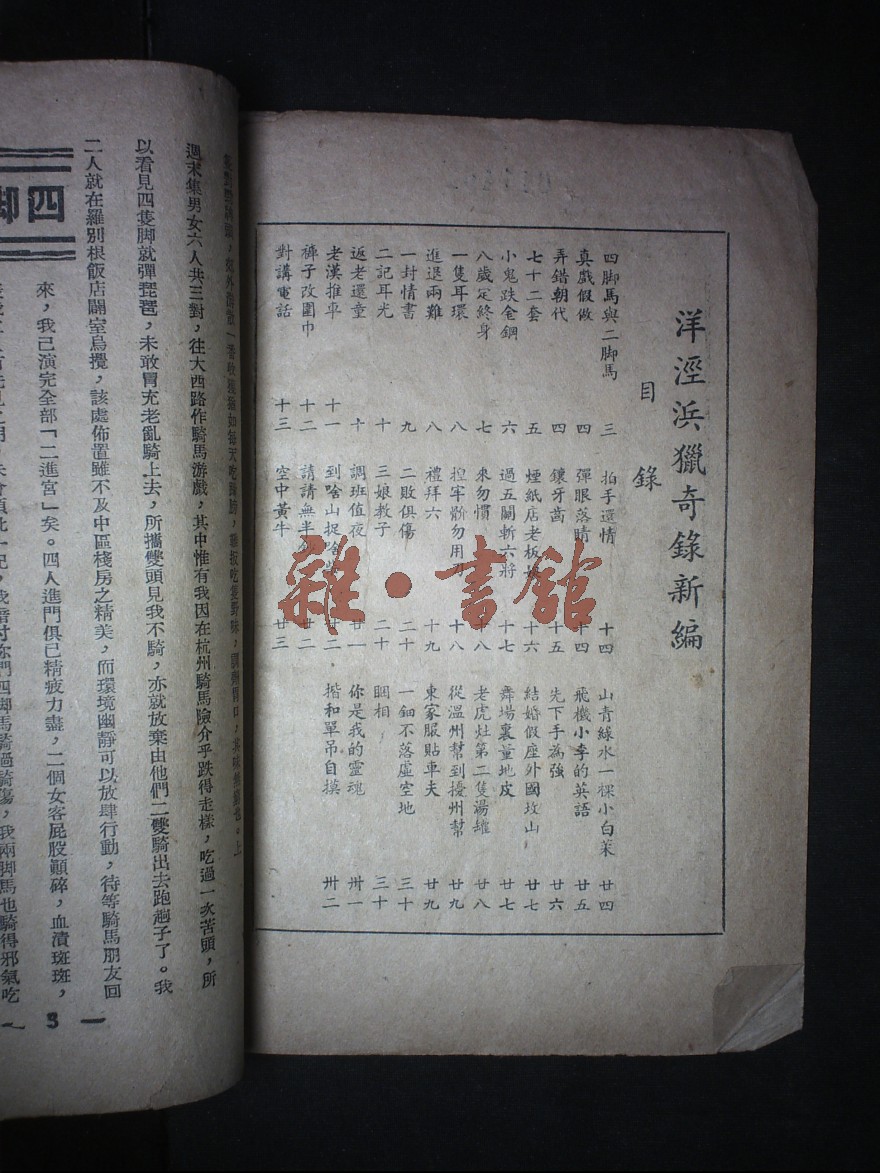 洋涇浜獵奇錄新編
目錄
四脚馬與二脚馬 三
真戲假做 四
弄錯朝代 四
七十二套 五
小鬼跌金鋼 六
八歲定終身 七
一隻耳環 八
進退兩難 八
一封情書 九
二記耳光 十
返老還童 十
老漢推車 十一
褲子改圍巾 十二
對講電話 十三
拍手還情 十四
彈眼落睛 十四
鑲牙齒 十五
煙紙店老板娘 十六
過五關斬六將 十七
來勿慣 十八
揑牢斷勿用刀 十八
禮拜六 十九
二敗俱傷 二十
三娘教子 二十
調班值夜 廿一
到啥山捉啥 廿二
請請無半 廿二
空中黃牛 廿三
山青綠水一棵小白菜 廿四
飛機小李的英語 廿五
先下手為強 廿六
結婚假座外國坟山 廿七
舞場裏量地皮 廿七
老虎灶第二隻湯罐 廿八
從溫州幫到擾州幫 廿九
東家服貼車夫 廿九
一鈿不落虛空地 三十
睏相 三十
你是我的靈魂 卅一
揩和單吊自摸 卅二
雜·書館
四脚
週末集男女六人共三對，往大西路作騎馬游戲，其中惟有我因在杭州騎馬險介乎跌得走樣，吃過一次苦頭，所
以看見四隻脚就彈琵琶，未敢冒充老亂騎上去，所攜雙頭見我不騎，亦就放棄由他們二雙騎出去跑趟子了。我
二人就在羅別根飯店闢室烏攪，該處佈置雖不及中區棧房之精美，而環境幽靜可以放肆行動，待等騎馬朋友回
來，我已演完全部「二進宮」矣。四人進門俱已精疲力盡，二個女客屁股顛碎，血漬斑斑，
我兩脚馬也騎得邪氣吃
— 3 —